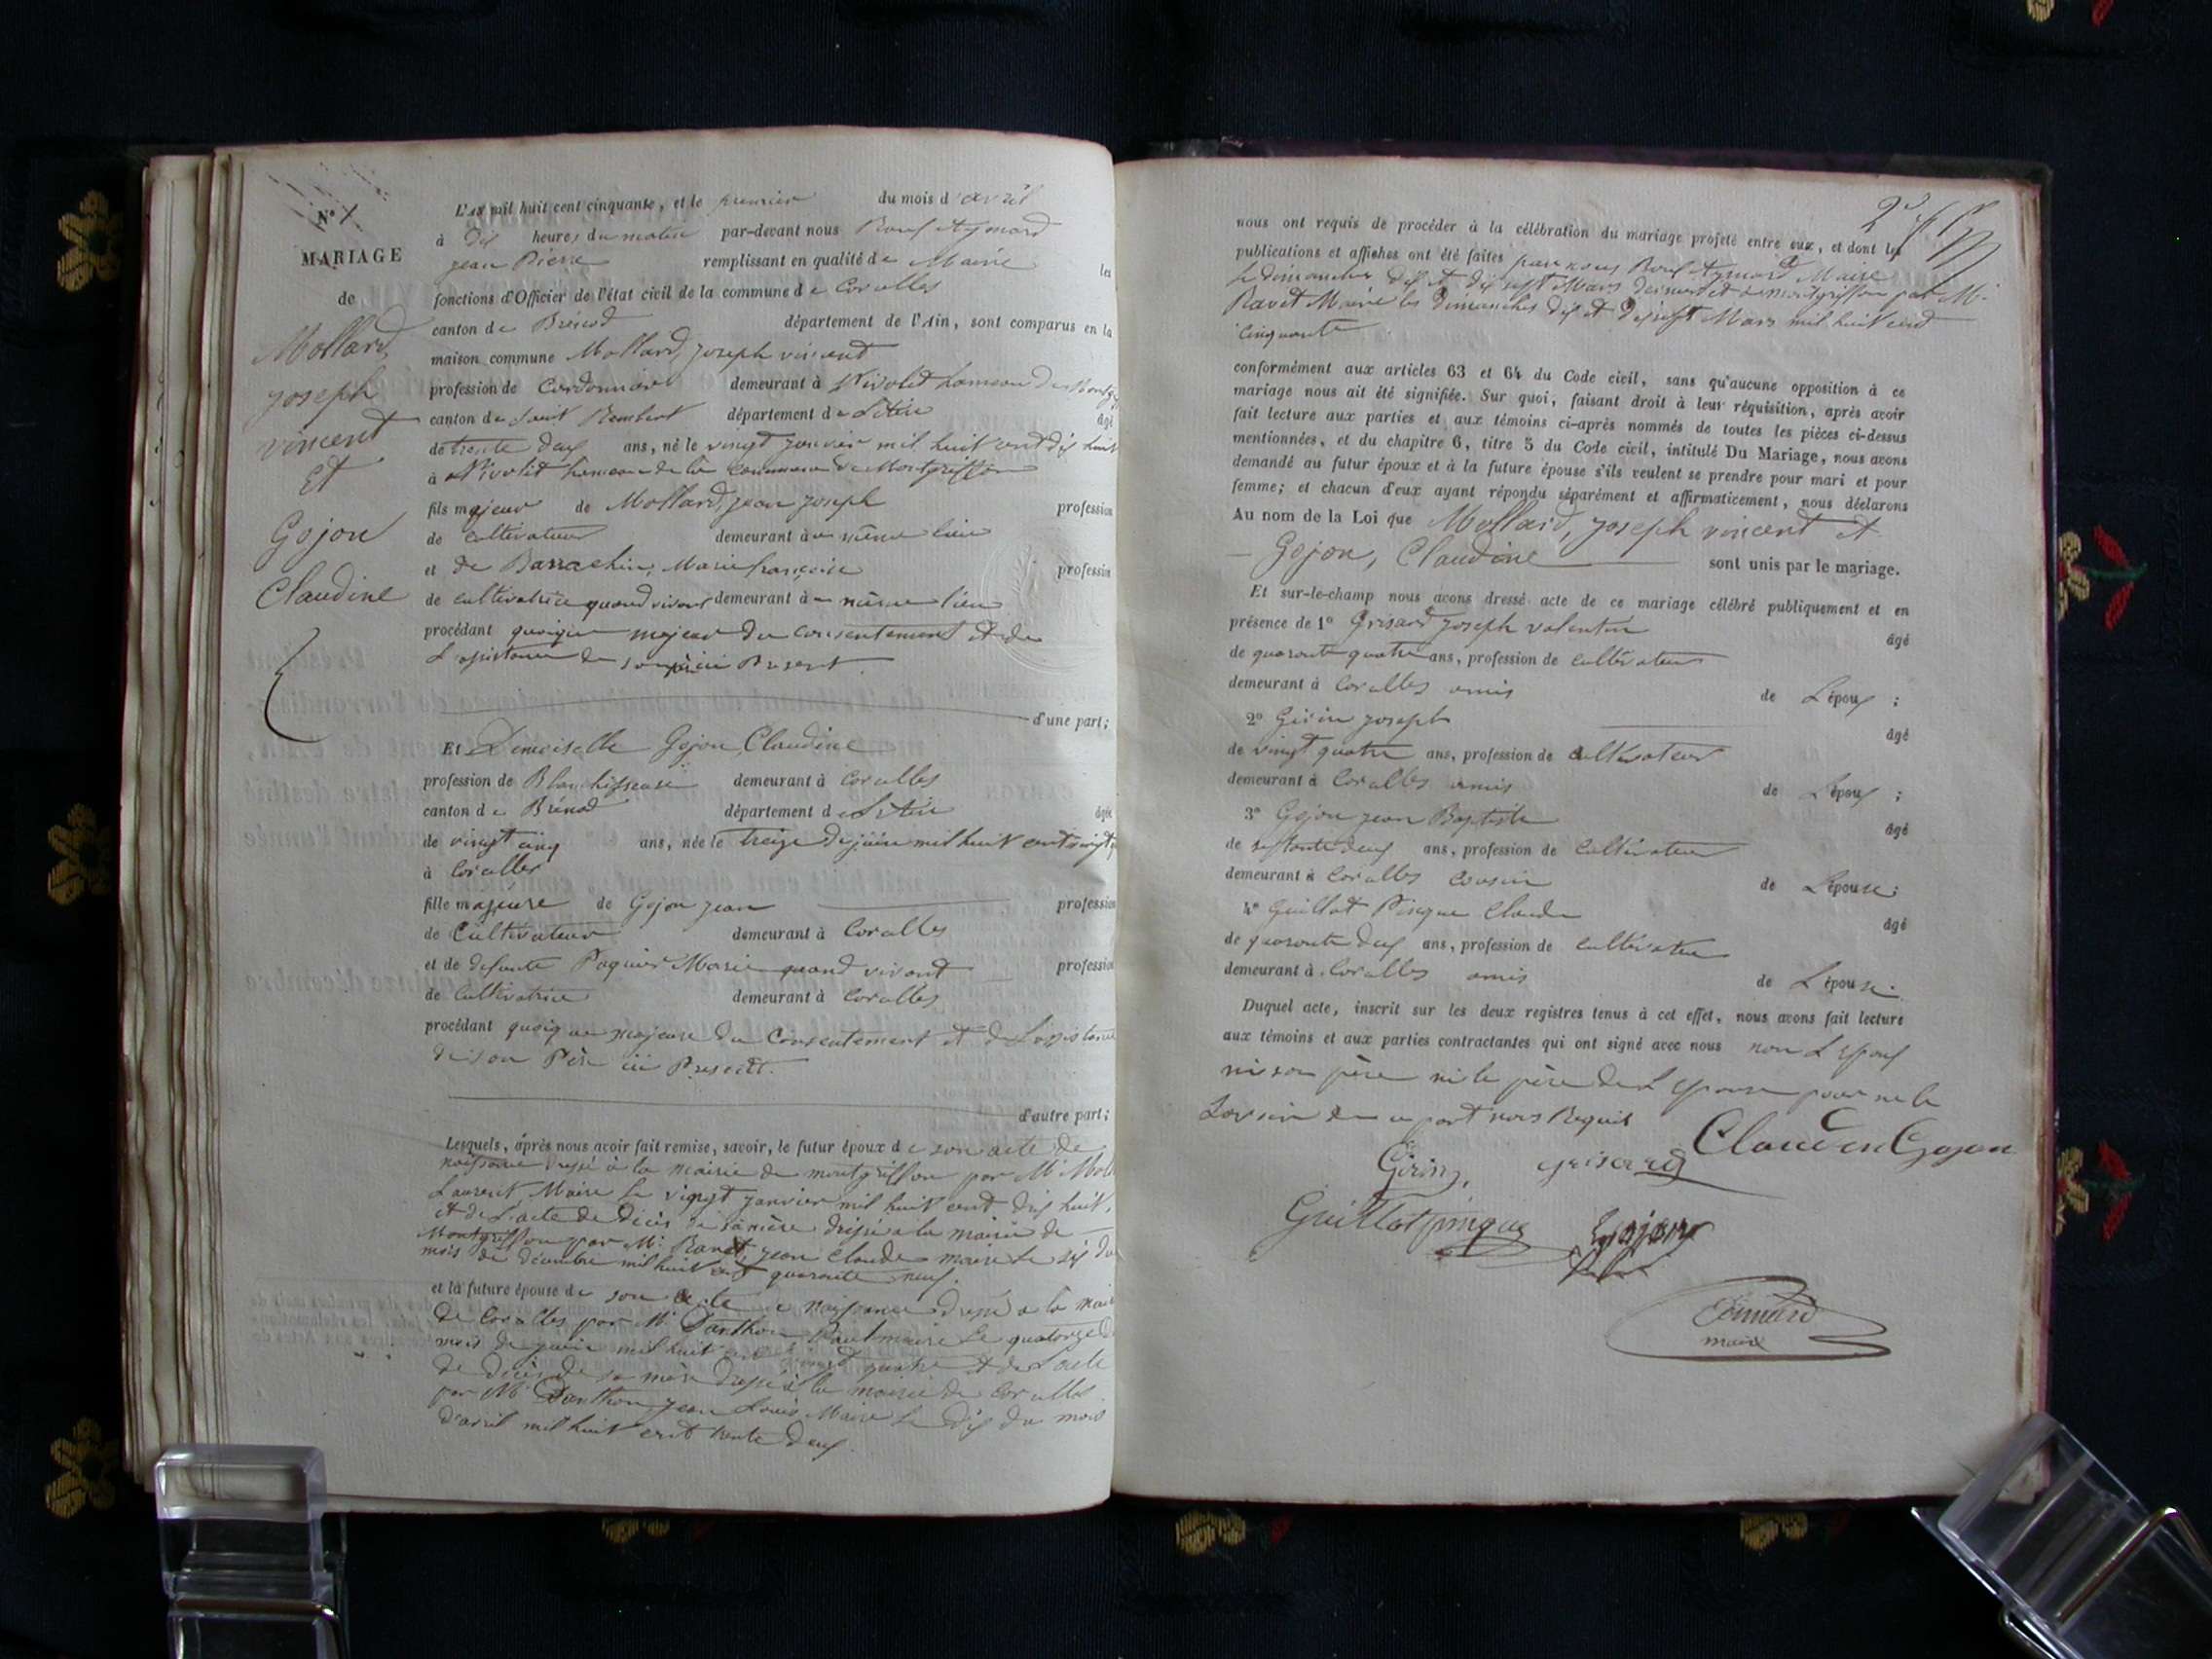 N° 1
MARIAGE
de
Mollard,
joseph
vincent
Et
Gojon
Claudine
L'AN mil huit cent cinquante, et le premier du mois d'avril
à dix heures du matin par-devant nous Aymard
jean Pierre remplissant en qualité de Maire les
fonctions d'Officier de l'état civil de la commune de Corcelles
canton de Brénod département de l'Ain, sont comparus en la
maison commune Mollard, joseph vincent
profession de Cordonnier demeurant à Nivolet hameau de
canton de Saint Rembert département de L'Ain âgé
de trente deux ans, né le vingt janvier mil huit cent dix huit
à Nivolet hameau de la commune de Montgriffon
fils majeur de Mollard, jean joseph profession
de cultivateur demeurant au même lieu
et de Barrachin, Marie françoise profession
de cultivatrice quand vivait demeurant au même lieu
procédant quoique majeur du consentement et de
L'assistance de son père ici Present.
d'une part;
Et Demoiselle Gojon, Claudine
profession de Blanchisseuse demeurant à Corcelles
canton de Brénod département de L'Ain âgée
de vingt cinq ans, née le treize de juin mil huit cent vingt
à Corcelles
fille majeure de Gojon jean profession
de Cultivateur demeurant à Corcelles
et de defunte Paquier Marie quand vivait profession
de Cultivatrice demeurant à Corcelles
procédant quoique majeure du Consentement et de L'assistance
de son Père ici Present.
d'autre part;
Lesquels, après nous avoir fait remise, savoir, le futur époux de son acte de
naissance dressé à la mairie de montgriffon par Mr
Laurent, Maire le vingt janvier mil huit cent dix huit,
et de L'acte de décès de sa mère dressé a la mairie de
Montgriffon par Mr. Ravet, jean Claude maire le six du
mois de décembre mil huit cent quarante neuf.
et la future épouse de son acte de naissance dressé a la
de Corcelles par Mr. Panthon Paul maire le quatorze
mois de juin mil huit cent vingt quatre et de L'acte
de décès de sa mère dressé à la mairie de Corcelles
par Mr Panthon jean Louis Maire le dix du mois
d'avril mil huit cent trente deux.
nous ont requis de procéder à la célébration du mariage projeté entre eux, et dont les
publications et affiches ont été faites par nous Aymard, Maire
Le dimanches dix et dix sept Mars dernier et a montgriffon par Mr.
Ravet Maire les dimanches dix et dix sept Mars mil huit cent
cinquante
conformément aux articles 63 et 64 du Code civil, sans qu'aucune opposition à ce
mariage nous ait été signifiée. Sur quoi, faisant droit à leur réquisition, après avoir
fait lecture aux parties et aux témoins ci-après nommés de toutes les pièces ci-dessus
mentionnées, et du chapitre 6, titre 5 du Code civil, intitulé Du Mariage, nous avons
demandé au futur époux et à la future épouse s'ils veulent se prendre pour mari et pour
femme; et chacun d'eux ayant répondu séparément et affirmativement, nous déclarons
Au nom de la Loi que Mollard, joseph vincent et
Gojon, Claudine sont unis par le mariage.
Et sur-le-champ nous avons dressé acte de ce mariage célébré publiquement et en
présence de 1° Grisard joseph valentin âgé
de quarante quatre ans, profession de cultivateur
demeurant à Corcelles amis de L'époux ;
2° Girin joseph âgé
de vingt quatre ans, profession de cultivateur
demeurant à Corcelles amis de L'époux ;
3° Gojon jean Baptiste âgé
de ans, profession de cultivateur
demeurant à Corcelles cousin de L'épouse ;
4° Guillot Pingue Claude âgé
de quarante deux ans, profession de cultivateur
demeurant à Corcelles amis de L'épouse.
Duquel acte, inscrit sur les deux registres tenus à cet effet, nous avons fait lecture
aux témoins et aux parties contractantes qui ont signé avec nous non L'époux
ni son père ni le père de L'epouse pour ne le
savoir de ce part nous Requis
Claudin Gojon
Girin, grisard
Guillot pingue Gojon
Aimard
maire